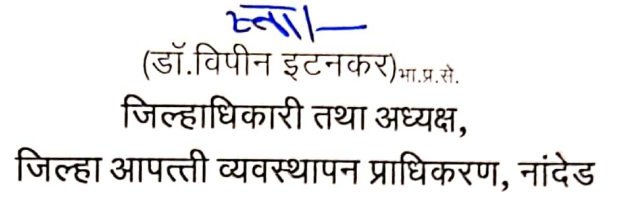 स्वा/-
(डॉ.विपीन इटनकर)भा.प्र.से.
जिल्हाधिकारी तथा अध्यक्ष,
जिल्हा आपत्ती व्यवस्थापन प्राधिकरण, नांदेड